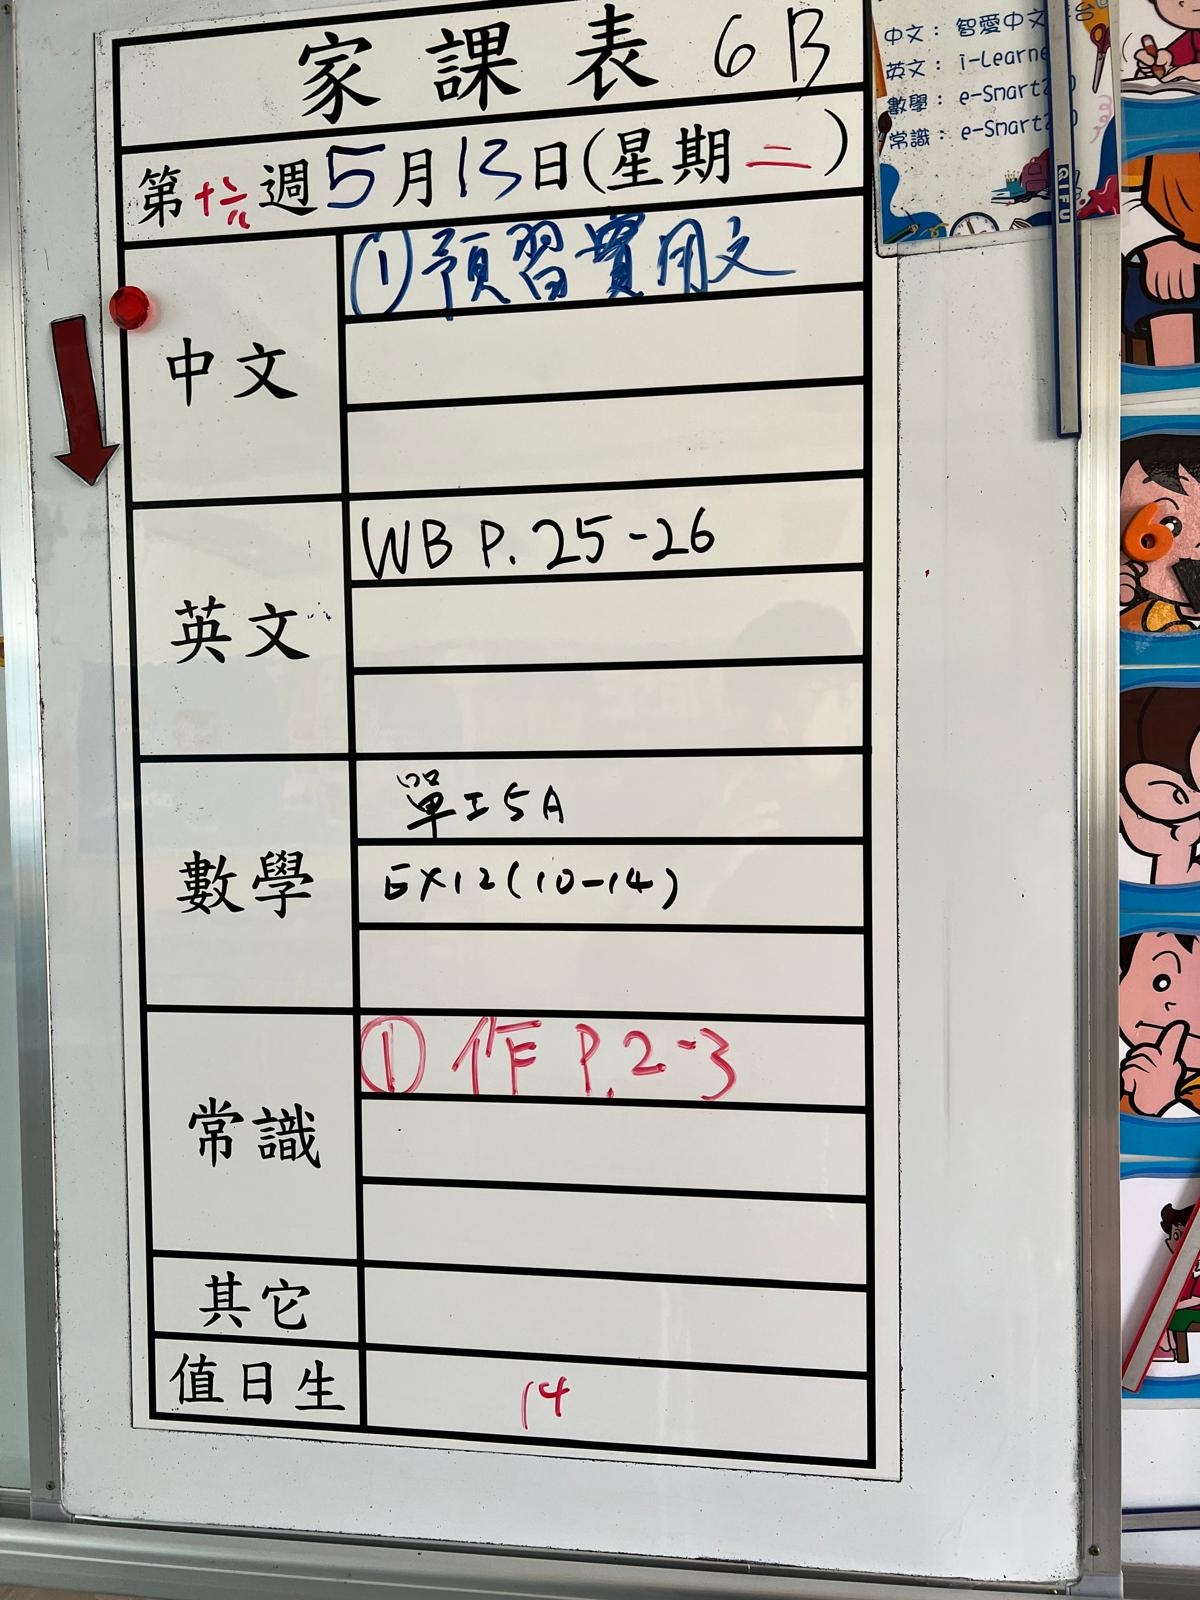 家課表 6B
第十六週5月13日(星期二)
中文
①預習實用文
英文
WB P. 25-26
數學
單工5A
EX12(10-14)
常識
① 作 P.2-3
其它
值日生
14
中文： 智愛中文
英文： i-Learne
數學： e-Smart
常識： e-Smart
QIFU
6